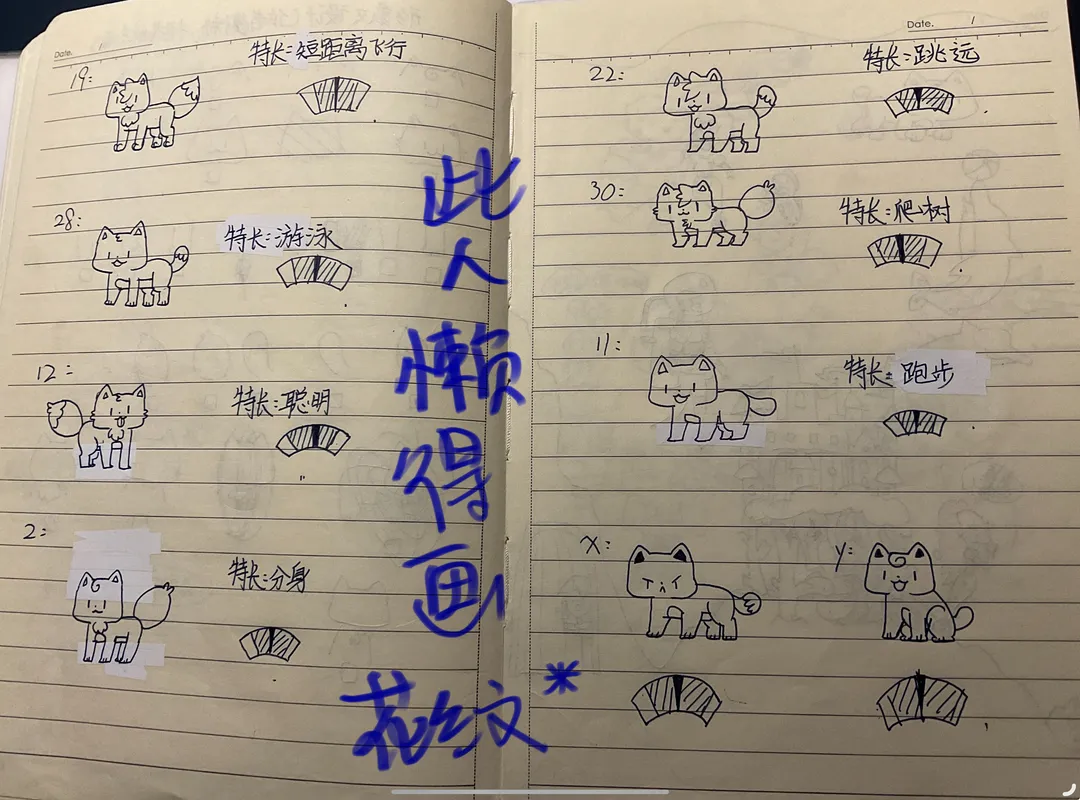 Date.
19:
特长:短距离飞行
28:
特长:游泳
12:
特长:聪明
2:
特长:分身
此
人
懒
得
画
花纹*
Date.
22:
特长:跳远
30:
特长:爬树
11:
特长:跑步
x:
y: